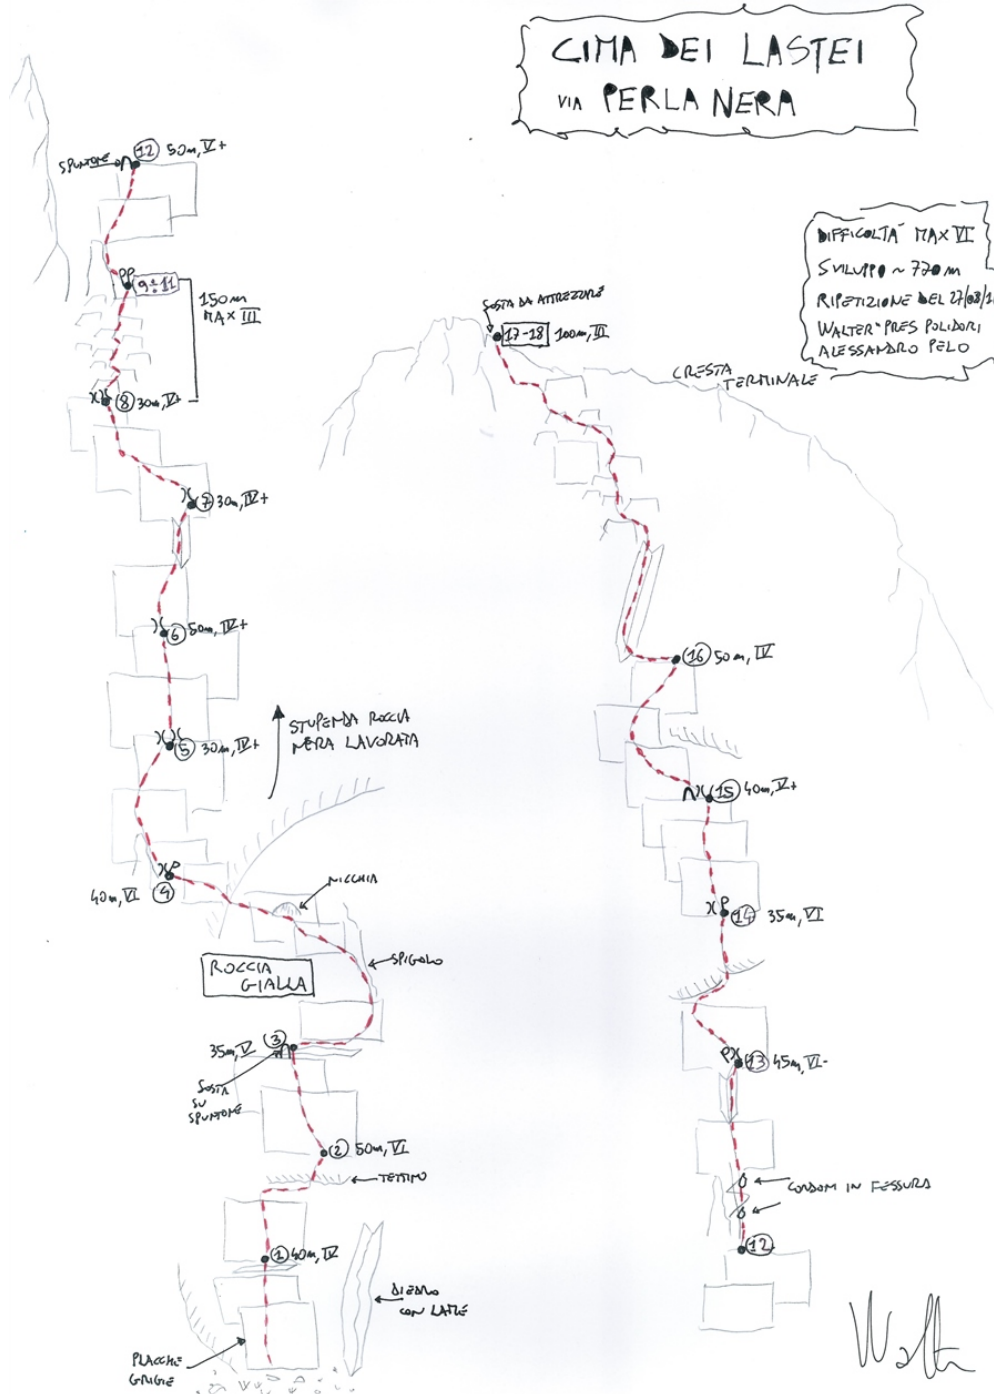 CIMA DEI LASTEI
VIA PERLA NERA
DIFFICOLTA' MAX VI
SVILUPPO ~ 770 m
RIPETIZIONE DEL 27/08/1
WALTER "PRES POLIDORI
ALESSANDRO PELO
SPUNTONE
12 50m, V+
PP 9÷11
150m
MAX III
8 30m, IV+
7 30m, IV+
6 50m, IV+
5 30m, IV+
STUPENDA ROCCIA
NERA LAVORATA
40m, VI 4
NICCHIA
SPIGOLO
ROCCIA
GIALLA
35m, V 3
SOSTA
SU
SPUNTONE
2 50m, VI
TETTINO
1 40m, IV
DIEDRO
CON LAME
PLACCHE
GRIGIE
SOSTA DA ATTREZZARE
17-18 100m, III
CRESTA
TERMINALE
16 50m, IV
15 40m, V+
14 35m, VI
13 45m, VI-
CORDONI IN FESSURA
12